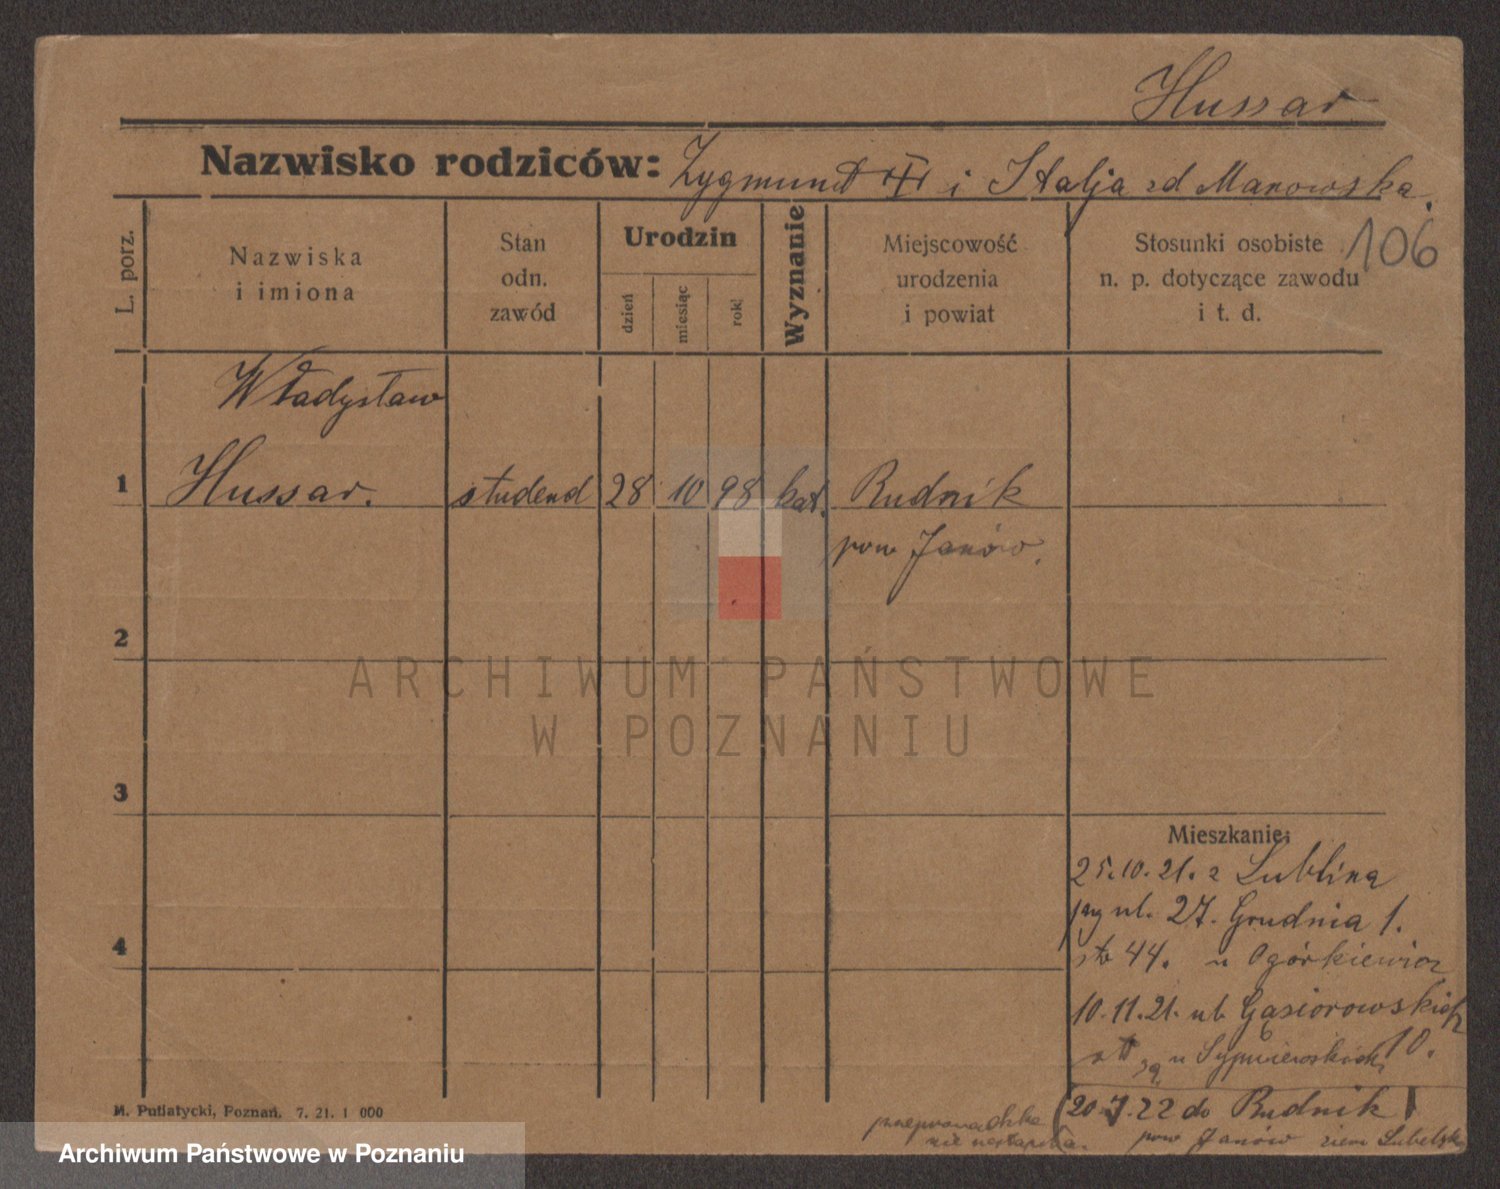 Hussar
Nazwisko rodziców: Zygmund i Italja zd Manowska.
106
L. porz.
Nazwiska
i imiona
Stan
odn.
zawód
Urodzin
dzień
miesiąc
rok
Wyznanie
Miejscowość
urodzenia
i powiat
Stosunki osobiste
n. p. dotyczące zawodu
i t. d.
Władysław
1 Hussar. studend 28 10 98 kat. Rudnik
pow Janów.
2
ARCHIWUM PAŃSTWOWE
W POZNANIU
3
Mieszkanie:
25.10.21. z Lublina
ul. 27. Grudnia 1.
4
44. u Ogórkiewicz
10.11.21. ul. Gąsiorowskich
10.
u
20.7.22 do Rudnik
pow Janów ziem Lubelsk
przeprowadzka
nie nastąpiła.
M. Putiatycki, Poznań. 7. 21. 1 000
Archiwum Państwowe w Poznaniu